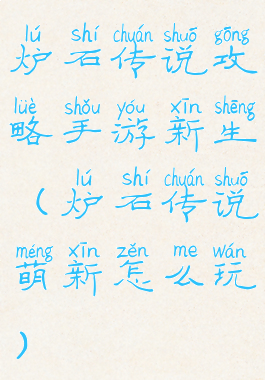 lú shí chuán shuō gōng
炉石传说攻
lüè shǒu yóu xīn shēng
略手游新生
lú shí chuán shuō
（炉石传说
méng xīn zěn me wán
萌新怎么玩
）